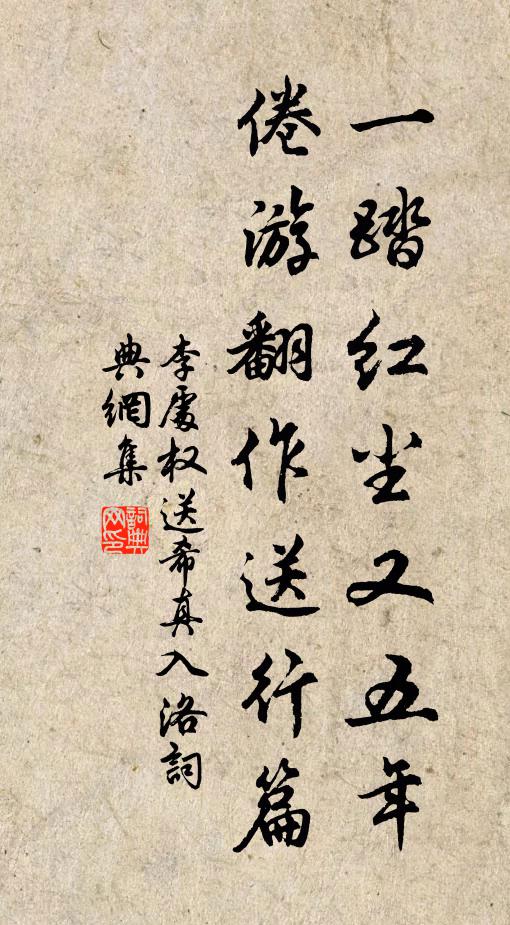 一踏红尘又五年
倦游翻作送行篇
李處权送希真入洛詞
典網集
詞典網印